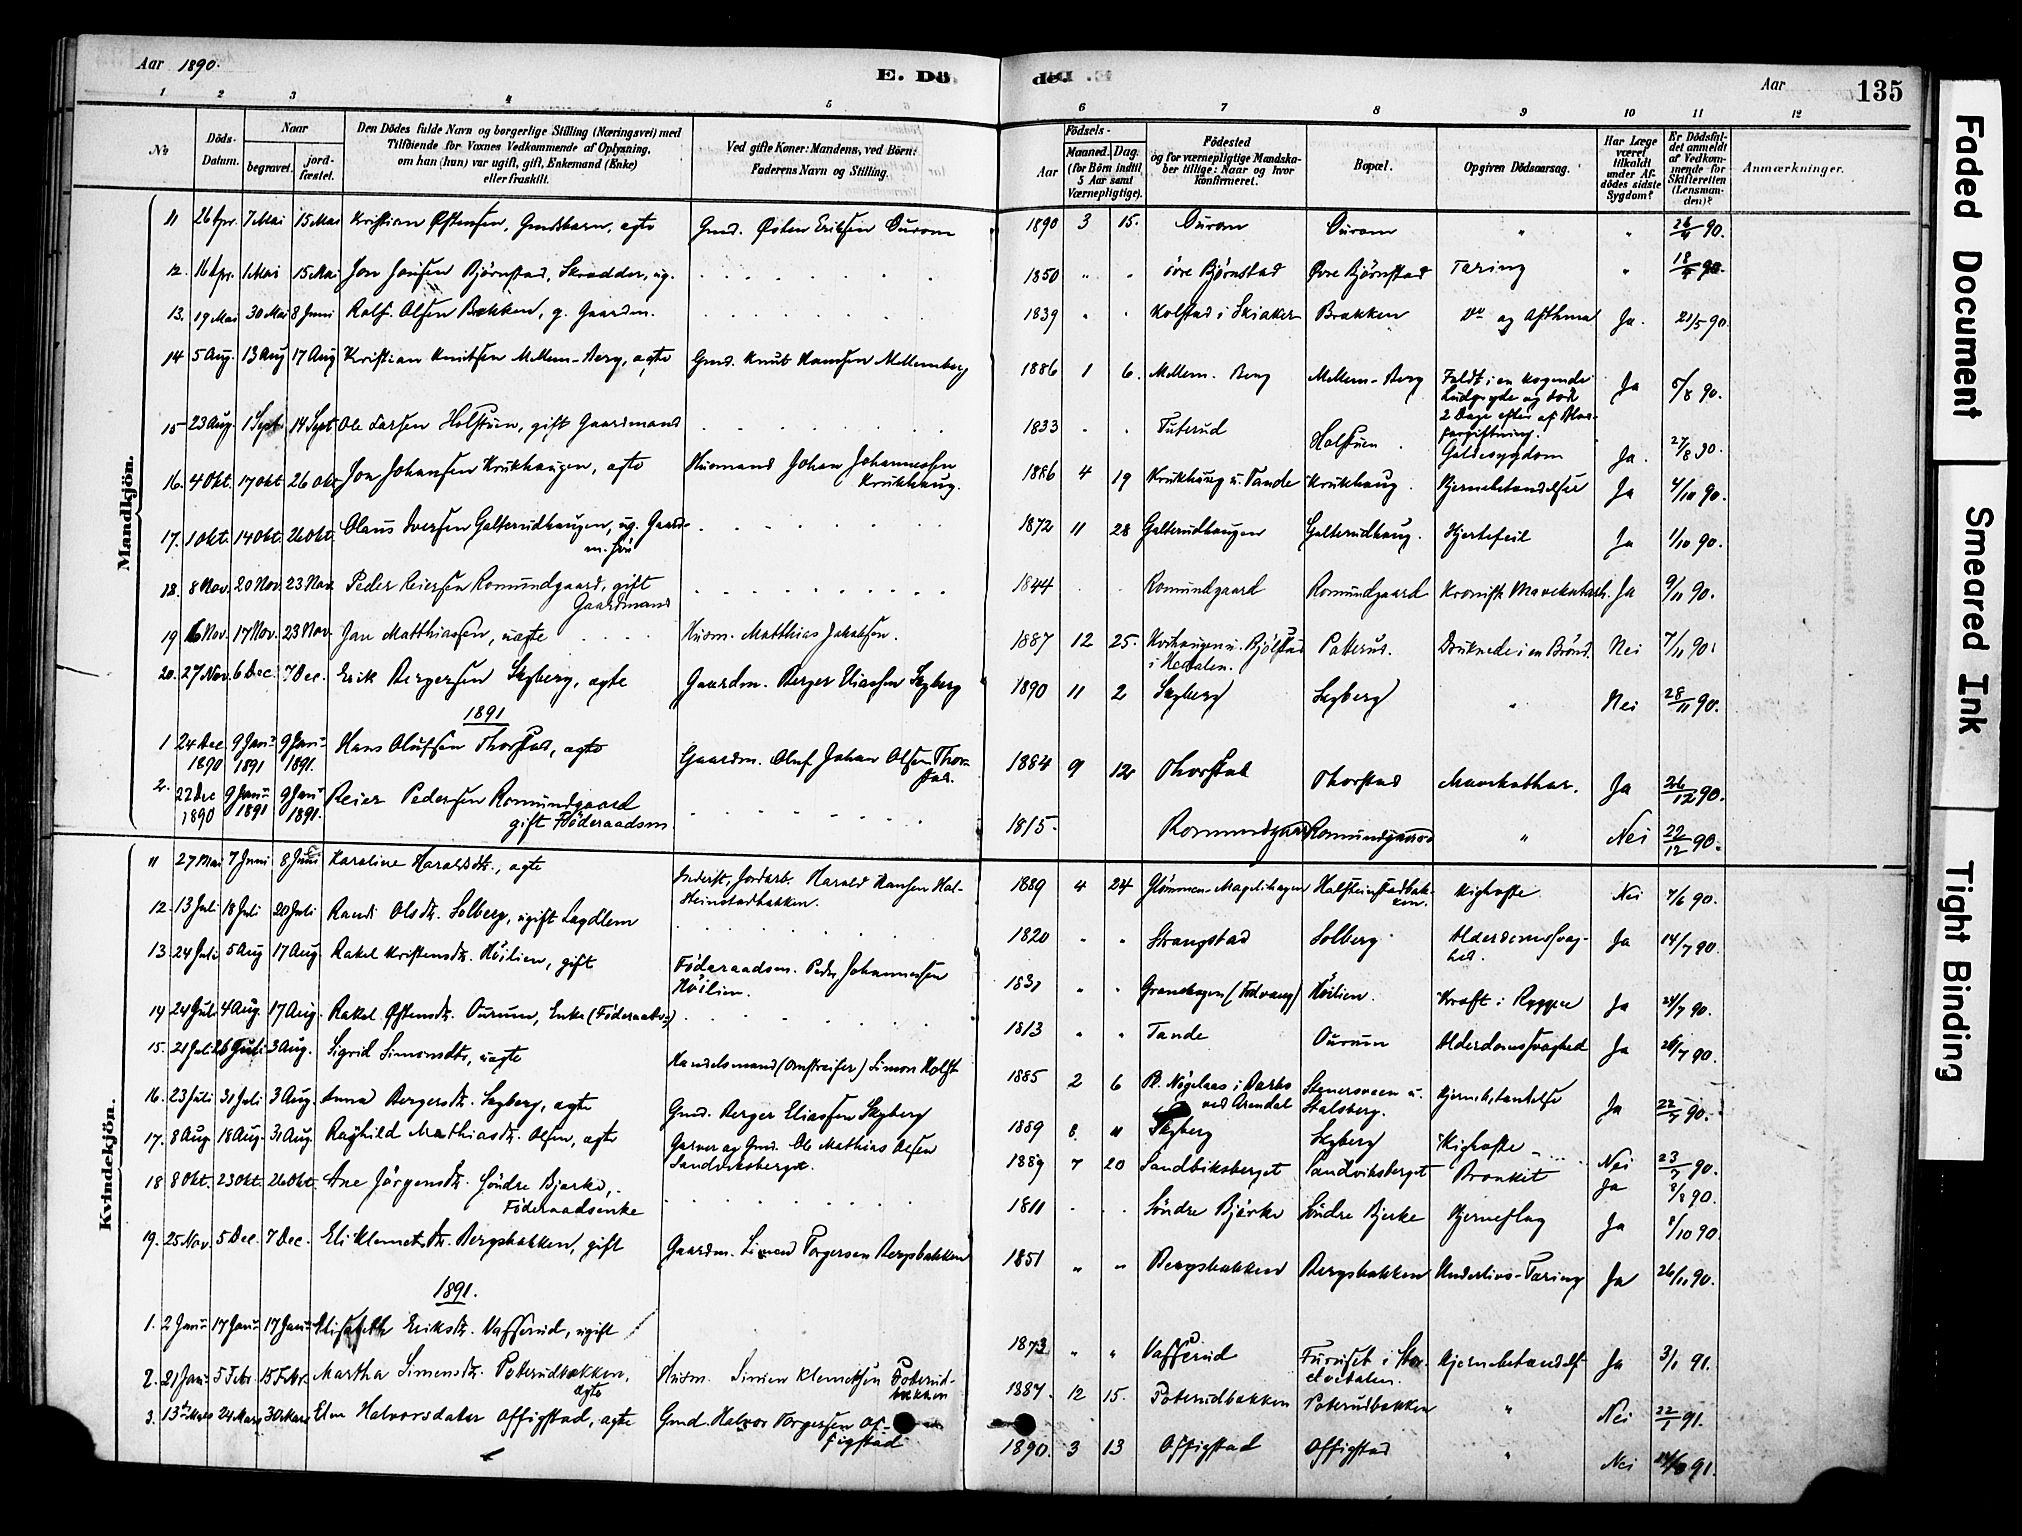 Aar 1890.
E. Dö
de.
Aar
135
1 2 3 4 5 6 7 8 9 10 11 12
No
Döds-Datum.
Naar
begravet.
jord-fæstet.
Den Dödes fulde Navn og borgerlige Stilling (Næringsvei) med
Tilföiende for Voxnes Vedkommende af Oplysning,
om han (hun) var ugift, gift, Enkemand (Enke)
eller fraskilt.
Ved gifte Koner: Mandens, ved Börn:
Faderens Navn og Stilling.
Födsels-
Aar
Maaned.
Dag.
(for Börn indtil
5 Aar samt
Værnepligtige).
Födested
og for værnepligtige Mandska-
ber tillige: Naar og hvor
konfirmeret.
Bopæl.
Opgiven Dödsaarsag.
Har Læge
været
tilkaldt
under Af-
dödes sidste
Sygdom?
Er Dödsfal-
det anmeldt
af Vedkom-
mende for
Skifteretten
(Lensman-
den)?
Anmærkninger.
Mandkjön.
11 26 Apr. 7 Mai 15 Mai Kristian Østensen, Gmdsbarn, ægte Gmd. Østen Eriksen Ourom 1890 3 15. Ourom Ourom " " 26/4 90.
12. 16 Apr. 1 Mai 15 Mai Jon Jonsen Bjørnstad, Skrædder, ug. 1850 " " övre Bjørnstad Øvre Bjørnstad Tæring " 18/4 90.
13. 19 Mai 30 Mai 8 Juni Rolf Olsen Bakken, g. Gaardm. 1839 " " Kolstad i Skiaker Brækken Do og Asthma Ja. 21/5 90.
14 5 Aug. 13 Aug 17 Aug Kristian Knutsen Mellem-Berg, ægte Gmd. Knut Hansen Mellemberg 1886 1 6. Mellem-Berg Mellem-Berg Faldt i en kogende
Ludgryde og döde
2 Dage efter af Blod-
forgiftning. Ja 5/8 90.
15 23 Aug. 1 Sept. 14 Sept Ole Larsen Holstuen, gift Gaardmand 1833 " " Tuterud Holstuen. Galdesygdom Ja. 27/8 90.
16. 4 Okt. 17 Okt 26 Okt Jon Johansen Krukhaugen, ægte Husmand Johan Johannessen
Krukhaug. 1886 4 19 Krukhaug u. Tande Krukhaug. Hjernebetændelse Ja 4/10 90.
17. 1 Okt. 14 Okt. 26 Okt. Olaus Iversen Galterudhaugen, ug. Gaard-
m. Sön 1872 11 28 Galterudhaugen Galterudhaug. Hjertefeil Ja 1/10 90.
18. 8 Nov. 20 Nov 23 Nov. Peder Reiersen Romundgaard, gift
Gaardmand 1844 Romundgaard Romundgaard Kronisk Mavekatarrh. Ja 9/11 90.
19 6 Nov. 17 Nov. 23 Nov. Jan Matthiassen, uægte Husm. Matthias Jakobsen. 1887 12 25. Kvihaugen u. Bjölstad
i Hedalen. Paterud. Druknede i en Brönd. Nei 7/11 90.
20. 27 Nov. 6 Dec. 7 Dec. Erik Bergersen Skyberg, ægte Gaardm. Berger Eliassen Skyberg 1890 11 2 Skyberg Skyberg " Nei 28/11 90.
1891
1 24 Dec.
1890 9 Janu
1891 9 Janu
1891. Hans Olufsen Thorstad, ægte Gaardm. Oluf Johan Olsen Thor-
stad. 1884 9 12 Thorstad Thorstad Mavekathar. Ja 26/12 90.
2. 22 Dec
1890 9 Janu
1891 9 Janu
1891. Reier Pedersen Romundgaard
gift Föderaadsm. 1815. Romundgaard Romundgaard " Nei 29/12 90.
Kvindekjön.
11 27 Mai 7 Juni 8 Juni Karoline Haraldsdtr., ægte Inderst, Jordarb. Harald Hansen Hol-
steinstadbakken. 1889 4 24 Glömmen-Magelihagen Holsteinstadbak-
ken. Kighoste. Nei 7/6 90.
12. 13 Juli 18 Juli 20 Juli Randi Olsdtr. Solberg, ugift Lægdlem 1820 " " Strangstad Solberg Alderdomssvag-
hed. Ja 14/7 90.
13. 24 Juli 5 Aug 17 Aug. Rakel Kristensdtr. Höilien, gift Föderaadsm. Peder Johannessen
Höilien. 1831 " " Granehagen (Fodvang) Höilien. Kræft i Ryggen Ja 24/7 90.
14 24 Juli 4 Aug. 17 Aug. Rakel Østensdtr. Ourum, Enke (Föderaads) 1813 " " Tande Ourum Alderdomssvaghed Ja 26/7 90.
15. 21 Juli 26 Juli 3 Aug. Sigrid Simonsdtr., uægte Handelsmand (Omstreifer) Simon Holst 1885 2 6 Pl. Nögelaas i Barbo
ved Arendal Stenersveen u.
Stalsberg. Hjernebetændelse Ja 22/7 90.
16. 23 Juli 31 Juli 3 Aug. Anna Bergersdtr. Skyberg, ægte Gmd. Berger Eliassen Skyberg 1889 8. " Skyberg Skyberg Kighoste Nei 23/7 90.
17. 8 Aug 18 Aug. 31 Aug. Ragnhild Mathiasdtr. Olsen, ægte Garver og Gmd. Ole Mathias Olsen
Sandviksberget. 1889 7 20 Sandbiksberget Sandviksberget Bronkit Ja 8/8 90.
18 8 Okt. 23 Okt. 26 Okt. Ane Jörgensdtr. Söndre Bjærke,
Föderaadsenke 1811 Söndre Bjærke Söndre Bjerke Hjerneslag Ja 8/10 90.
19. 25 Nov. 5 Dec. 7 Dec. Eli Klemetsdtr. Bergsbakken, gift Gaardm. Simen Torgersen Bergsbakken 1851 " " Bergsbakken Bergsbakken Underlivs-Tæring Ja 26/11 90.
1891.
1. 2 Janu 17 Janu 17 Janu Elisabeth Eriksdtr. Vasserud, ugift 1873 " " Vasserud Furuset i Stor-
elvedalen. Hjernebetændelse Ja 3/1 91.
2. 21 Janu 5 Febr. 15 Febr. Martha Simensdtr. Poterudbakken,
ægte Husm. Simen Klemetsen Poterud-
bakken 1887. 12 15. Poterudbakken Poterudbakken " Nei 22/1 91.
3. 13 Mars 24 Mars 30 Mars Elen Halvorsdater Offigstad, ægte Gmd. Halvor Torgersen Of-
figstad 1890. 3 13 Offigstad Offigstad " Nei 91.
Faded Document
Smeared Ink
Tight Binding